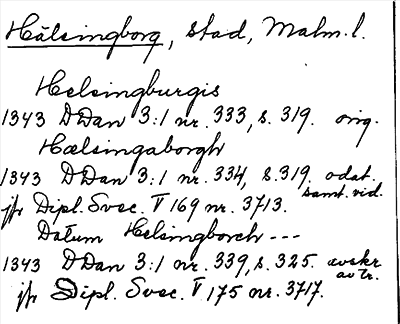 Hälsingborg, stad, Malm. l.
Helsingburgis
1343 DDan 3:1 nr. 333, s. 319. orig.
Hælsingaborgh
1343 DDan 3:1 nr. 334, s. 319. odat. samt. vid.
jfr Dipl. Svec. V 169 nr. 3713.
Datum Helsingborch ---
1343 DDan 3:1 nr. 339, s. 325. avskr. av tr.
jfr Dipl. Svec. V 175 nr. 3717.